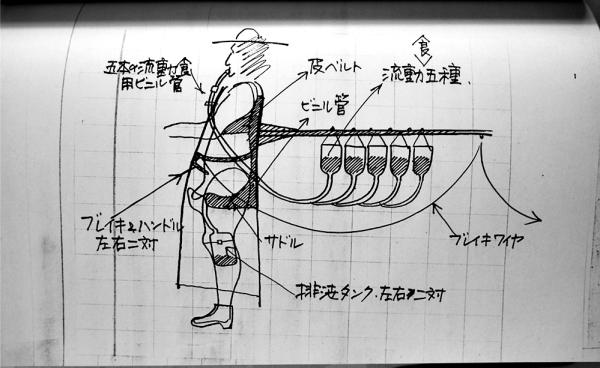 五本の流動食
用ビニル管
皮ベルト
食
流動五種.
ビニル管
ブレイキとハンドル
左右二対
サドル
ブレイキワイヤ
排泄タンク.左右二対